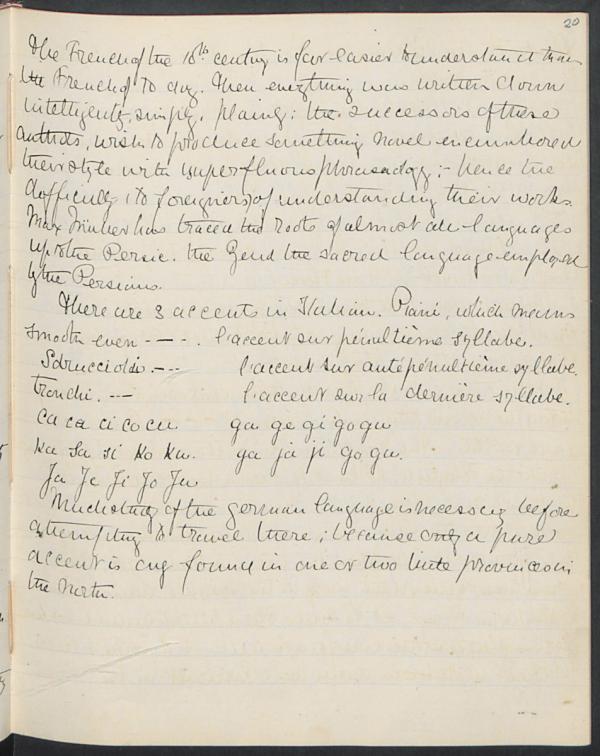 20
The French of the 16th century is far easier to understand than
the French of to day. Then everything was written down
intelligently, simply, plainly: the successors of these
authors, wish to produce something novel encumbered
their style with superfluous phraseology; - hence the
difficulty, to foreigners, of understanding their works.
Max Müller has traced the roots of almost all languages
up to the Persic. the Zend the sacred language employed
by the Persians.
There are 3 accents in Italian. Piani, which means
smooth even - — - . l'accent sur pénultième syllabe.
Sdruccioli. — - - l'accent sur antépénultième syllabe.
tronchi. - - — l'accent sur la dernière syllabe.
Ca ca ci co cu ga ge gi go gu
Ka sa si Ko Ku. ga ja ji go gu.
Ja Je Ji Jo Ju
Much study of the german language is necessary before
attempting to travel there; because only a pure
accent is only found in one or two little provinces in
the North.